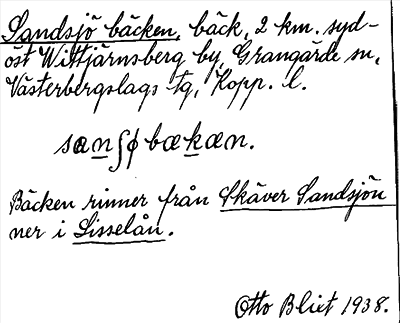 Sandsjö bäcken, bäck, 2 km. syd-
öst Wittjärnsberg by, Grangärde sn,
Västerbergslags tg, Kopp. l.
sanʃɸbækæn.
Bäcken rinner från Skäver Sandsjön
ner i Lisselån.
Otto Blixt 1938.